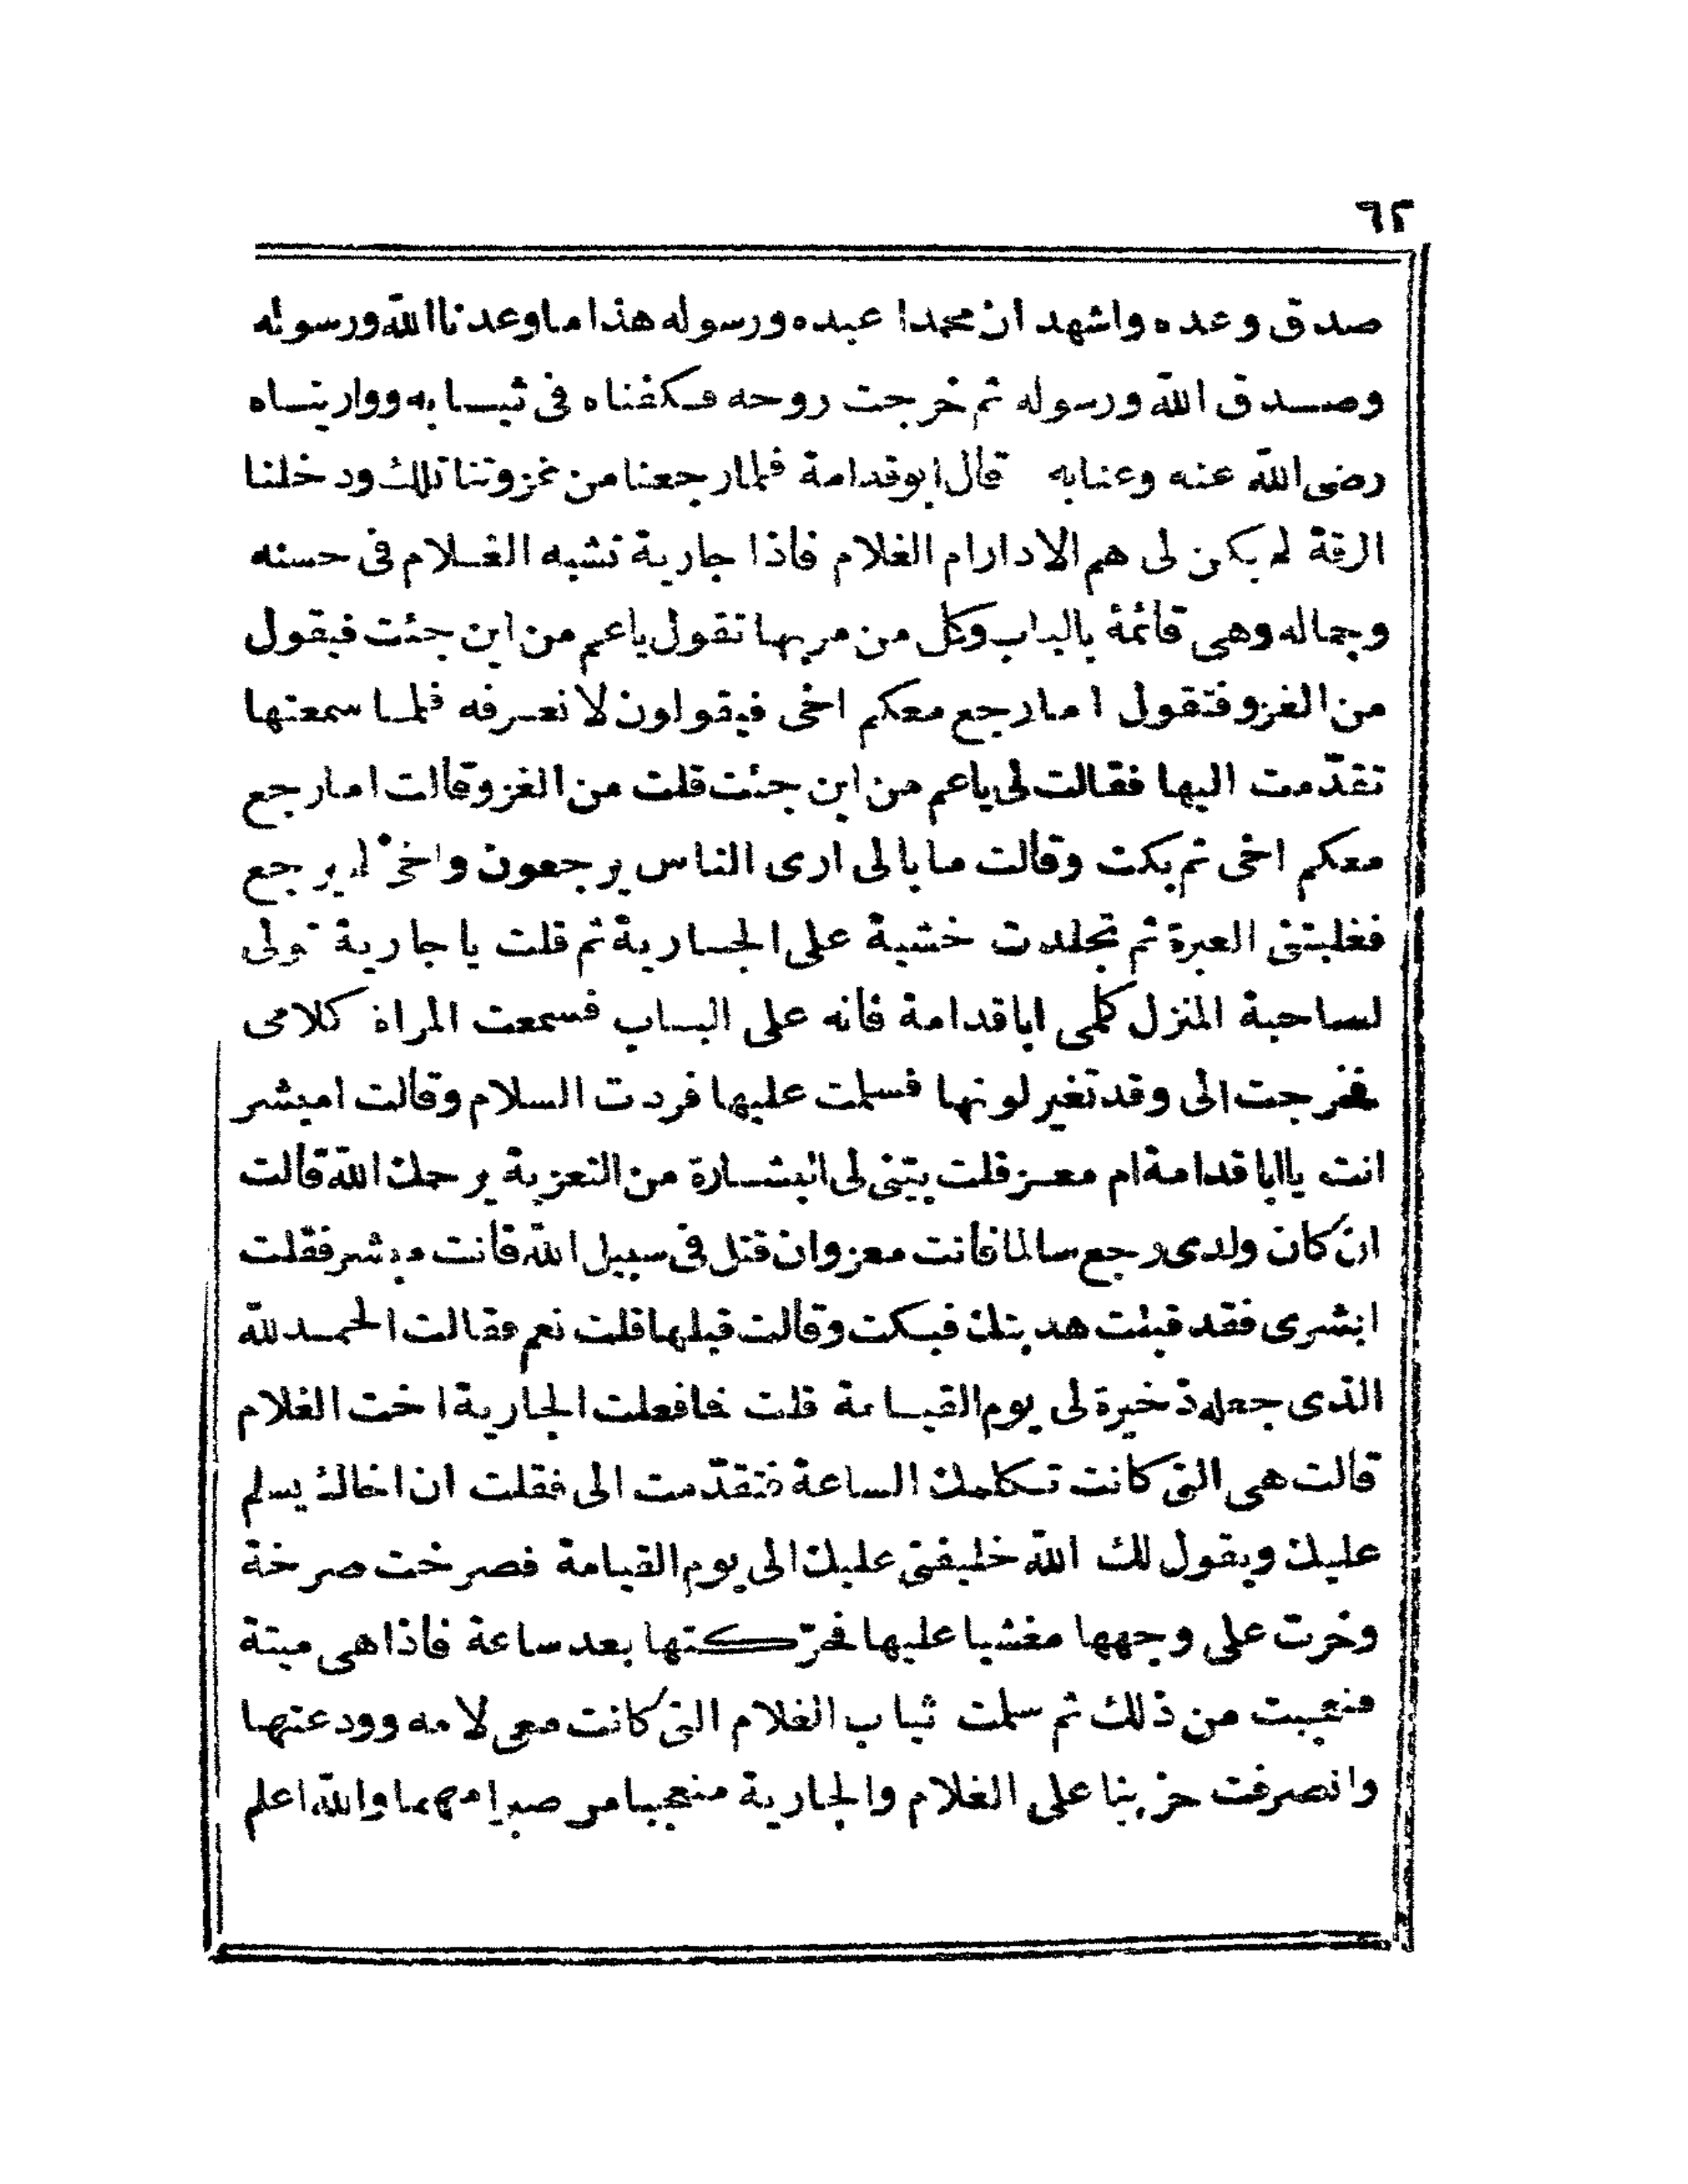 ٦٢
صدق وعده واشهد ان محمدا عبده ورسوله هذا ما وعدنا الله ورسوله
وصدق الله ورسوله ثم خرجت روحه فكفناه فى ثيابه وواريناه
رضى الله عنه وعنابه قال ابوقدامة فلما رجعنا من غزوتنا تلك ودخلنا
الرقة لم يكن لى هم الا دار ام الغلام فاذا جارية تشبه الغلام فى حسنه
وجماله وهى قائمة بالباب وكل من مر بها تقول ياعم من اين جئت فيقول
من الغزو فتقول اما رجع معكم اخى فيقولون لا نعرفه فلما سمعتها
تقدّمت اليها فقالت لى ياعم من اين جئت قلت من الغزو قالت اما رجع
معكم اخى ثم بكت وقالت ما بالى ارى الناس يرجعون واخى لم يرجع
فغلبتنى العبرة ثم تجلدت خشية على الجارية ثم قلت يا جارية قولى
لصاحبة المنزل كلمى اباقدامة فانه على الباب فسمعت المراة كلامى
فخرجت الى وقد تغير لونها فسلمت عليها فردت السلام وقالت امبشر
انت يا ابا قدامة ام معز قلت بينى لى البشارة من التعزية يرحمك الله قالت
ان كان ولدى رجع سالما فانت معز وان قتل فى سبيل الله فانت مبشر فقلت
ابشرى فقد قبلت هديتك فبكت وقالت قبلها قلت نعم فقالت الحمد لله
الذى جعله ذخيرة لى يوم القيامة قلت فما فعلت الجارية اخت الغلام
قالت هى التى كانت تكلمك الساعة فتقدّمت الى فقلت ان اخاك يسلم
عليك ويقول لك الله خليفتى عليك الى يوم القيامة فصرخت صرخة
وخرت على وجهها مغشيا عليها فحرّكتها بعد ساعة فاذا هى ميتة
فتعجبت من ذلك ثم سلمت ثياب الغلام التى كانت معى لامه وودعتها
وانصرفت حزينا على الغلام والجارية متعجبا من صبر امهما والله اعلم